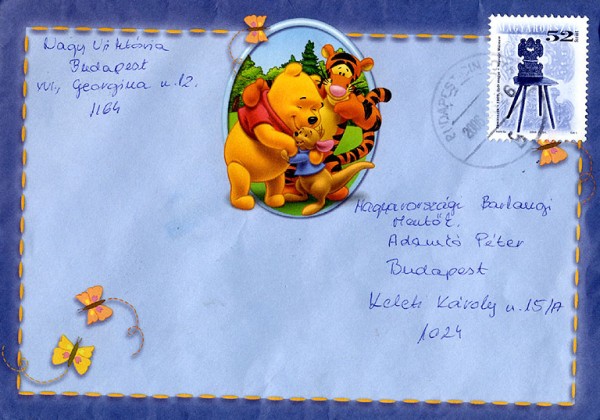 Nagy Viktória
Budapest
XVI, Georgina u. 12.
1164
52
MAGYARORSZÁG
BUDAPEST
Magyarországi Barlangi
Mentőt.
Adamkó Péter
Budapest
Keleti Károly u. 15/A
1024